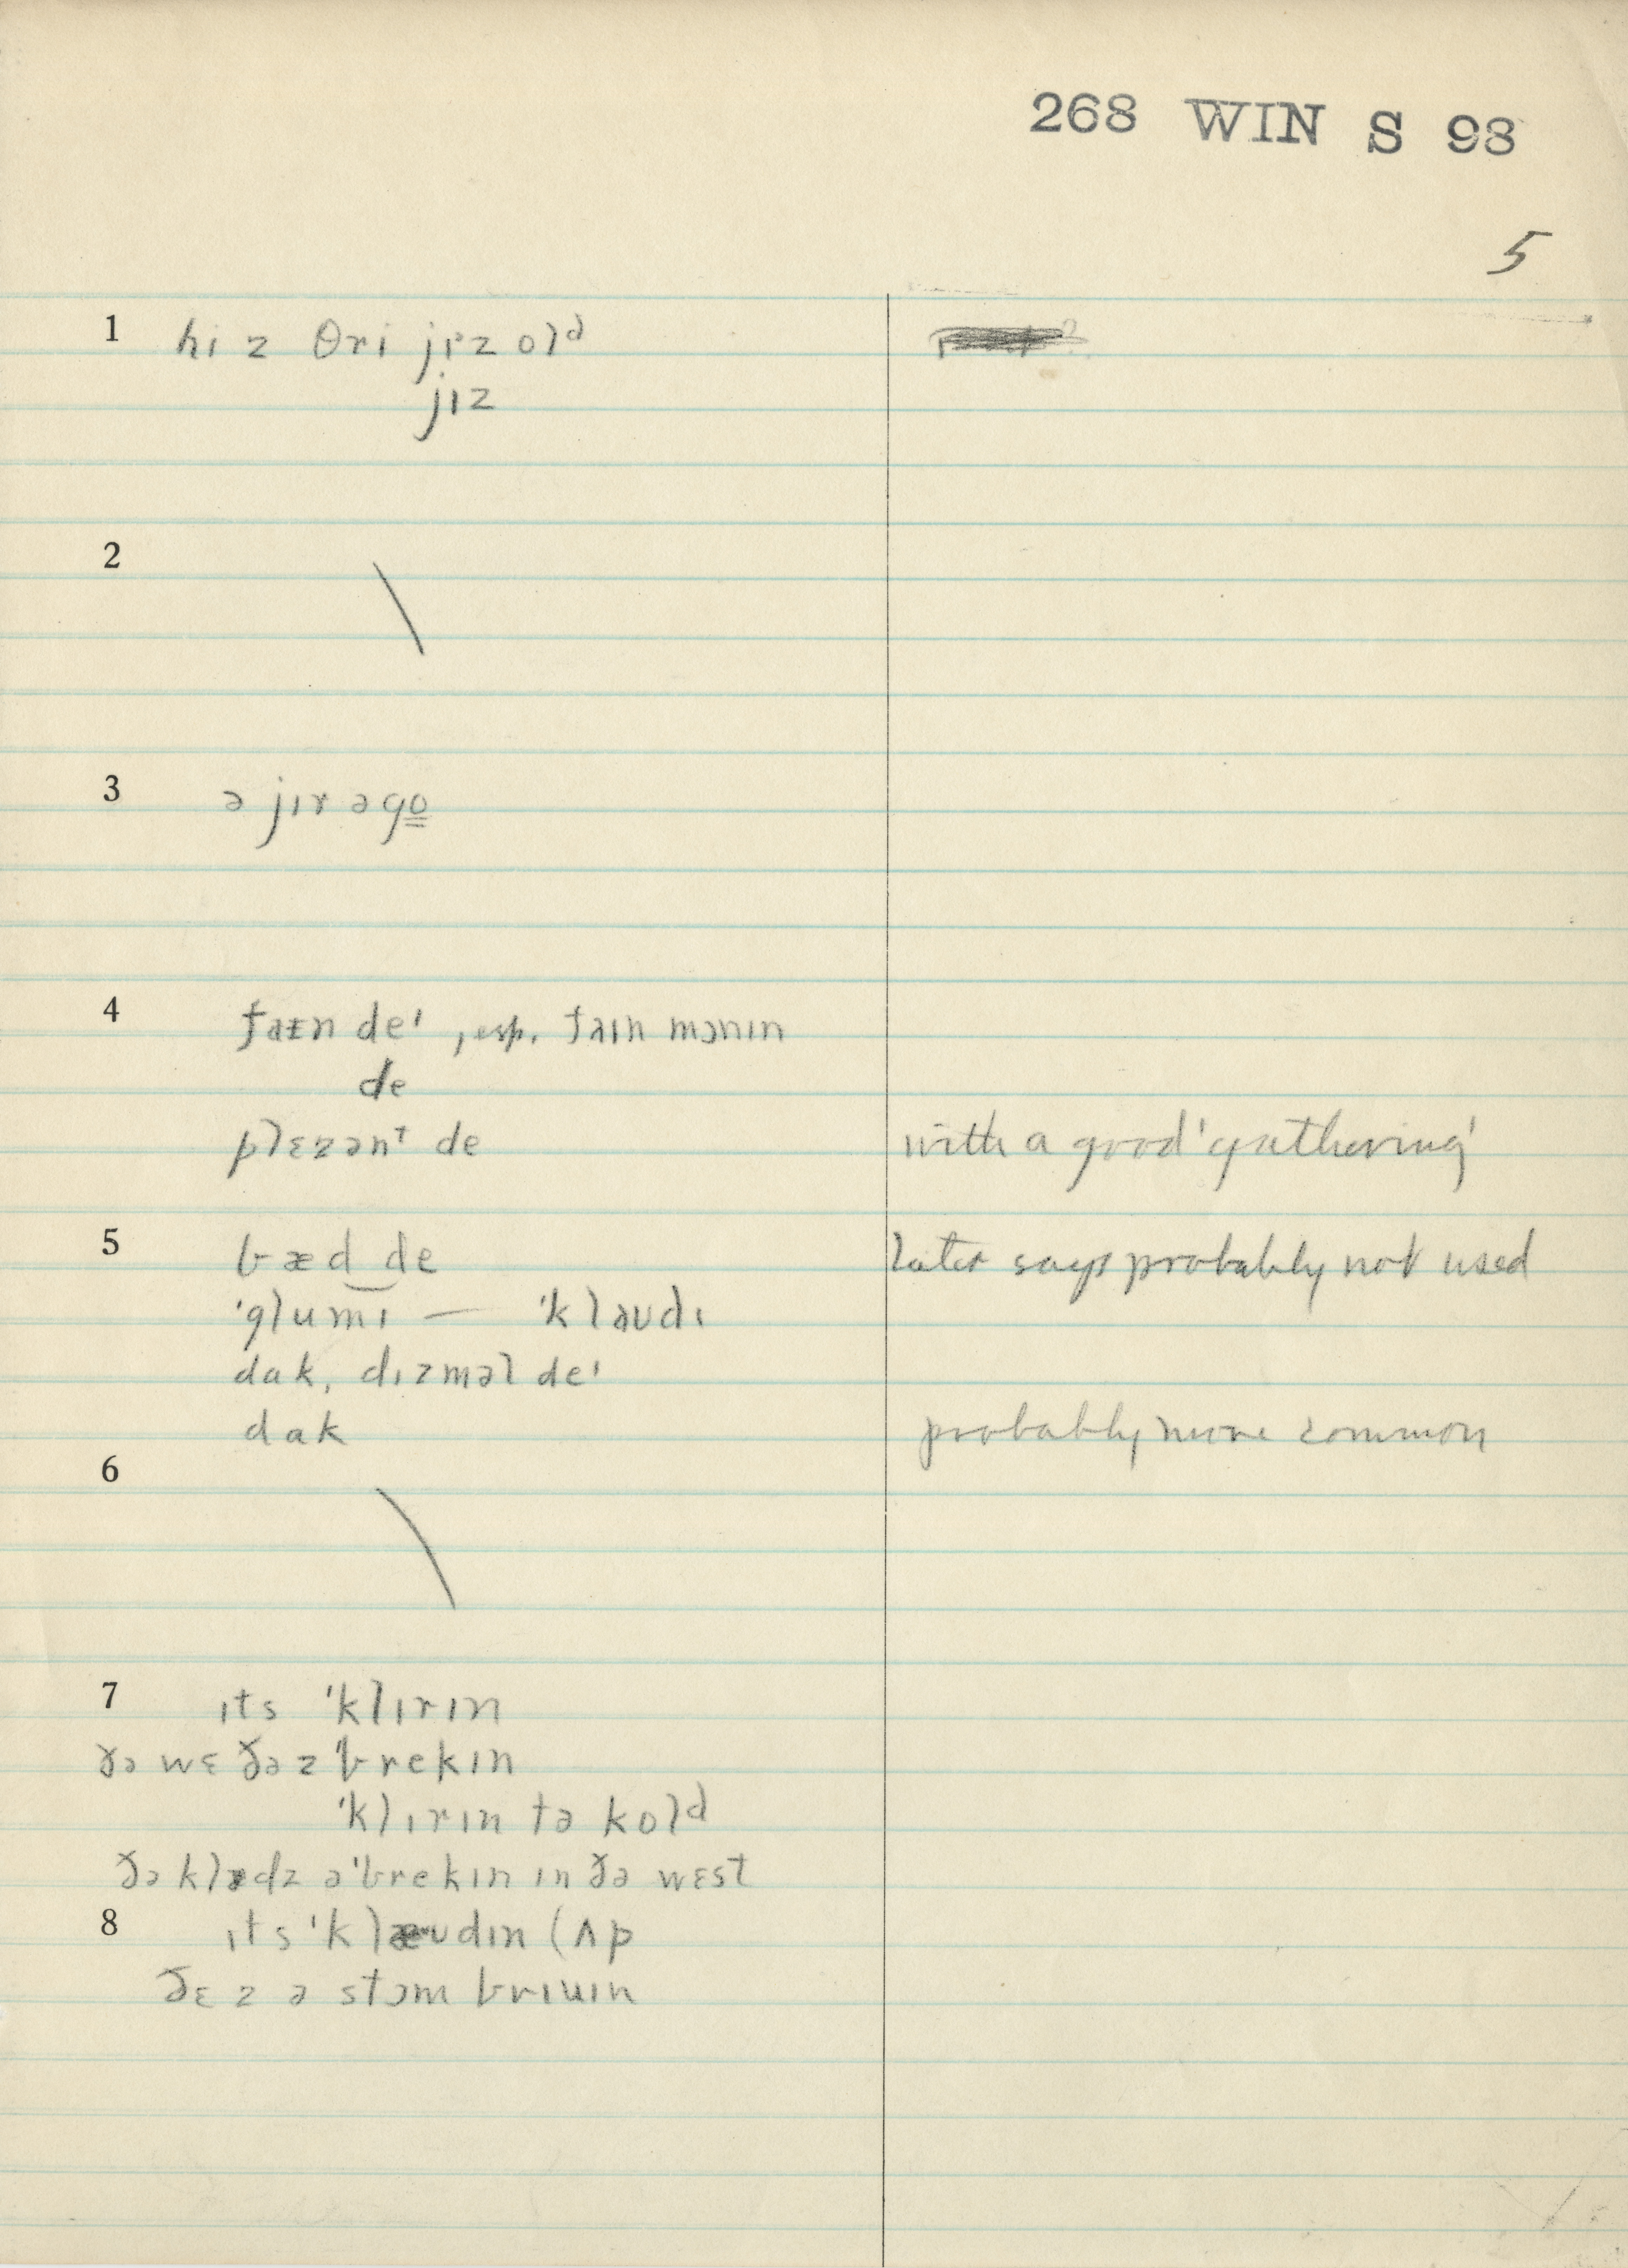 268 WIN S 98
5
1 hi z θri jɪᵊz olᵈ
jɪz
2
3 ə jɪr əgo̳
4 faɪn deᶦ, esp. faɪn mɔnɪn
de
plɛzənᵗ de with a good 'gathering'
5 bæd‿de later says probably not used
ˈglumɪ — ˈklaʊdɪ
dak, dɪzməl deᶦ
dak probably more common
6
7 ɪts ˈklɪrɪn
ðə wɛðəz ˈbrekɪn
ˈklɪrɪn tə kolᵈ
ðə klədz əˈbrekɪn ɪn ðə wɛst
8 ɪts ˈklæʊdɪn (ʌp
ðɛz ə stɔm brɪuɪn